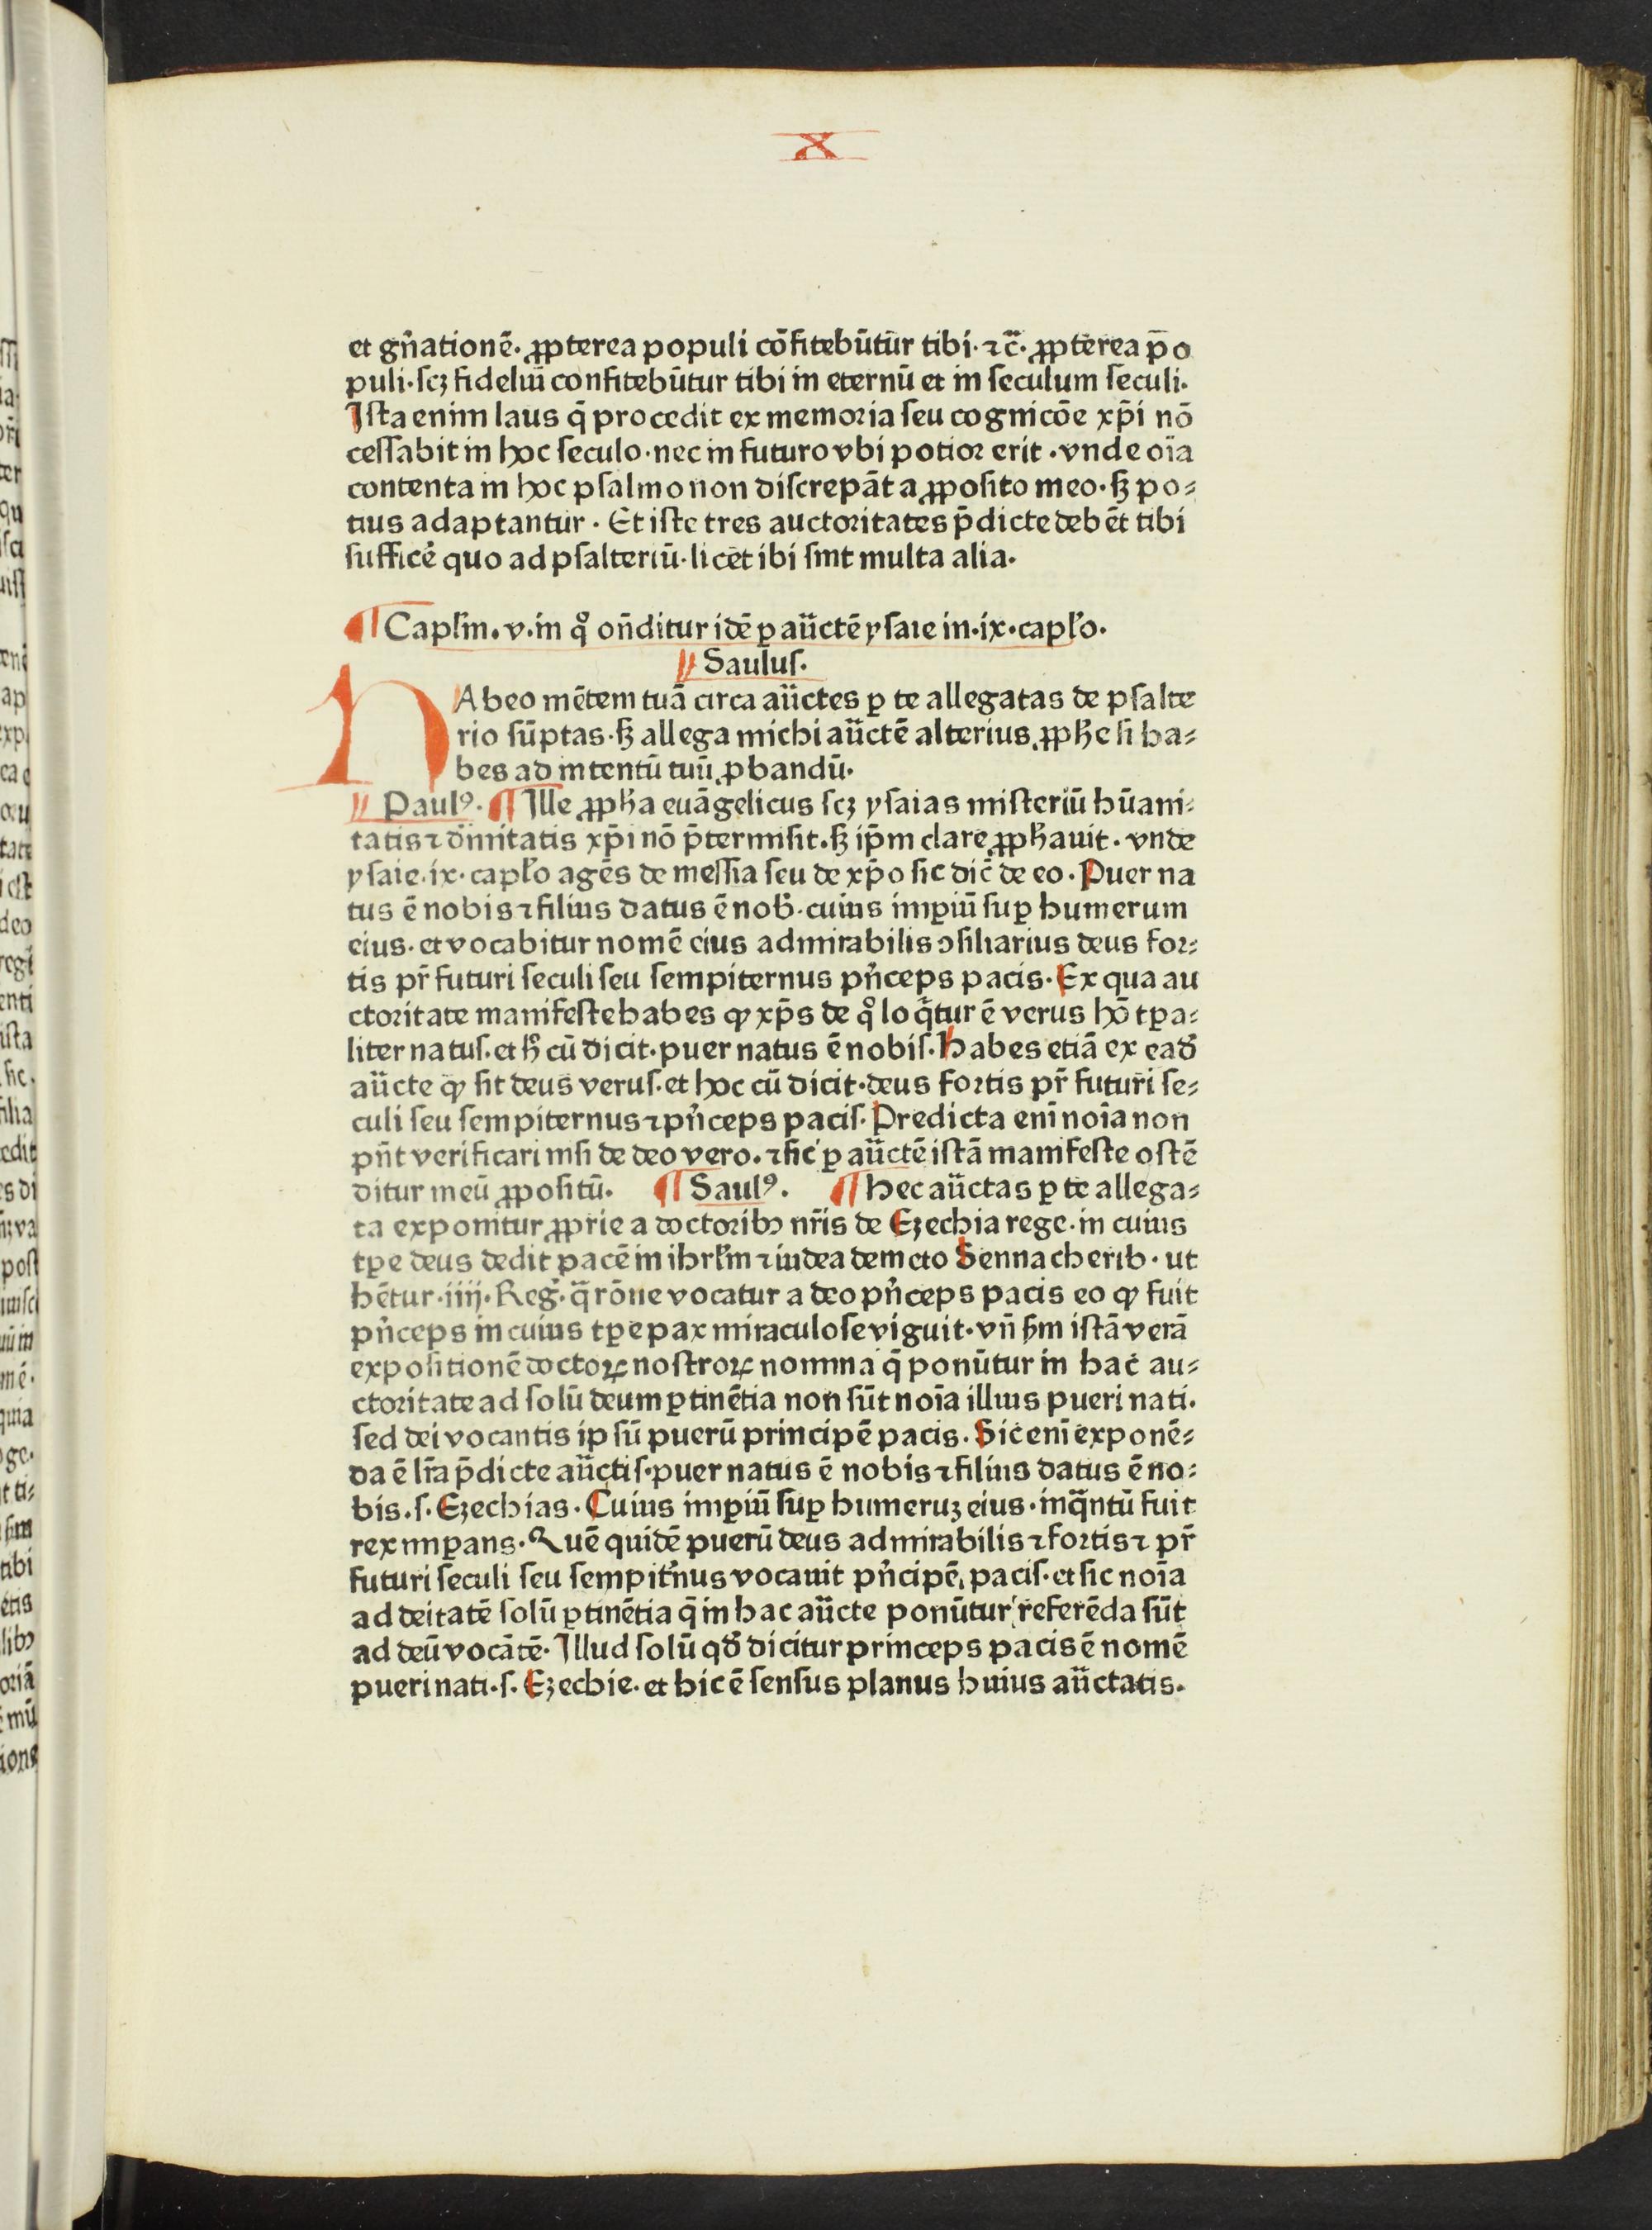 X
et gñationē. ꝓpterea populi cōfitebūtur tibi. ⁊c̄. ꝓpterea po
puli. scꝫ fideliū confitebūtur tibi in eternū et in seculum seculi.
Ista enim laus q̄ procedit ex memoria seu cognicōe xp̄i nō
cessabit in hoc seculo. nec in futuro vbi potior erit. vnde oīa
contenta in hoc psalmo non discrepāt a ꝓposito meo. sꝫ po⸗
tius adaptantur. Et iste tres auctoritates p̄dicte debēt tibi
sufficē quo ad psalteriū. licet ibi sint multa alia.
¶ Capłm. v. in qͦ oñditur idē ꝑ auctē ysaie in. ix. capło.
Saulus.
HAbeo mētem tuā circa auctes ꝑ te allegatas de psalte
rio sūptas. sꝫ allega michi auctē alterius ꝓpħe si ha⸗
bes ad intentū tuū ꝓbandū.
Paulꝰ. ¶ Ille ꝓpħa euāgelicus scꝫ ysaias misteriū hūani⸗
tatis ⁊ diuinitatis xp̄i nō p̄termisit. sꝫ ip̄m clare ꝓpħauit. vnde
ysaie. ix. capło agēs de messia seu de xp̄o sic dic̄ de eo. Puer na
tus ē nobis ⁊ filius datus ē nob̄. cuius imꝑiū suꝑ humerum
eius. et vocabitur nomē eius admirabilis ↄsiliarius deus for⸗
tis pr̄ futuri seculi seu sempiternus pñceps pacis. Ex qua au
ctoritate manifeste habes ꝙ xp̄s de qͦ loq̄tur ē verus hō tꝑa⸗
liter natus. et hͦ cū dicit. puer natus ē nobis. Habes etiā ex eaď
aucte ꝙ sit deus verus. et hoc cū dicit. deus fortis pr̄ futuri se⸗
culi seu sempiternus ⁊ pñceps pacis. Predicta enī noīa non
pñt verificari nisi de deo vero. ⁊ sic ꝑ auctē istā manifeste ostē
ditur meū ꝓpositū. ¶ Saulꝰ. ¶ Hec auctas ꝑ te allega⸗
ta exponitur ꝓprie a doctoribꝫ nr̄is de Ezechia rege. in cuius
tꝑe deus dedit pacē in ihrłm ⁊ iudea deuicto Sennacherib. ut
hētur. iiij. Reḡ. q̄ rōne vocatur a deo pñceps pacis eo ꝙ fuit
pñceps in cuius tꝑe pax miraculose viguit. vñ sm̄ istā verā
expositionē doctoꝝ nostroꝝ nomina q̄ ponūtur in hac au⸗
ctoritate ad solū deum ꝑtinētia non sūt noīa illius pueri nati.
sed dei vocantis ipsū puerū principē pacis. Sic enī exponē⸗
da ē lr̄a p̄dicte auctis. puer natus ē nobis ⁊ filius datus ē no⸗
bis. s. Ezechias. Cuius imꝑiū suꝑ humeruꝫ eius. inq̄ntū fuit
rex imꝑans. Quē quidē puerū deus admirabilis ⁊ fortis ⁊ pr̄
futuri seculi seu sempitñus vocauit pñcipē pacis. et sic noīa
ad deitatē solū ꝑtinētia q̄ in hac aucte ponūtur referēda sūt
ad deū vocātē. Illud solū qď dicitur princeps pacis ē nomē
pueri nati. s. Ezechie. et hic ē sensus planus huius auctatis.